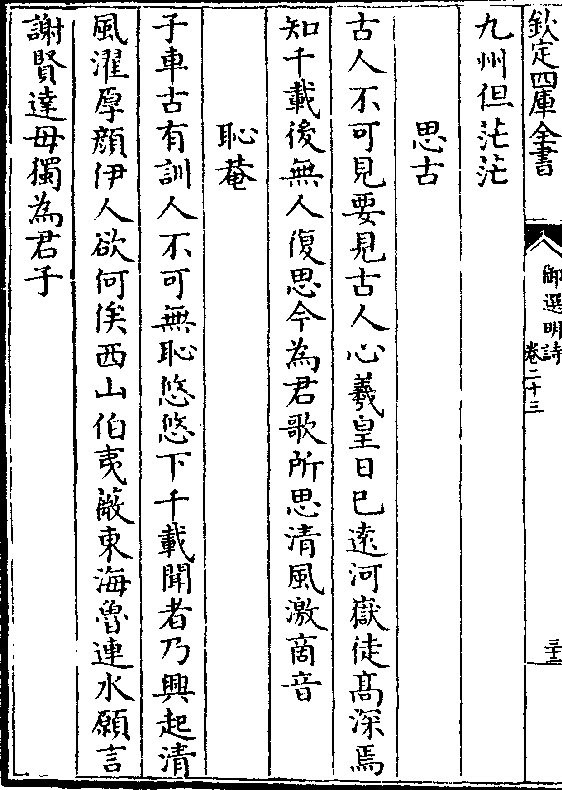 欽定四庫全書
御選明詩
卷二十三
三十三
九州但茫茫
思古
古人不可見要見古人心羲皇日已遠河嶽徒髙深焉
知千載後無人復思今為君歌所思清風激商音
恥菴
子車古有訓人不可無恥悠悠下千載聞者乃興起清
風濯厚顔伊人欲何俟西山伯夷薇東海魯連水願言
謝賢達毋獨為君子